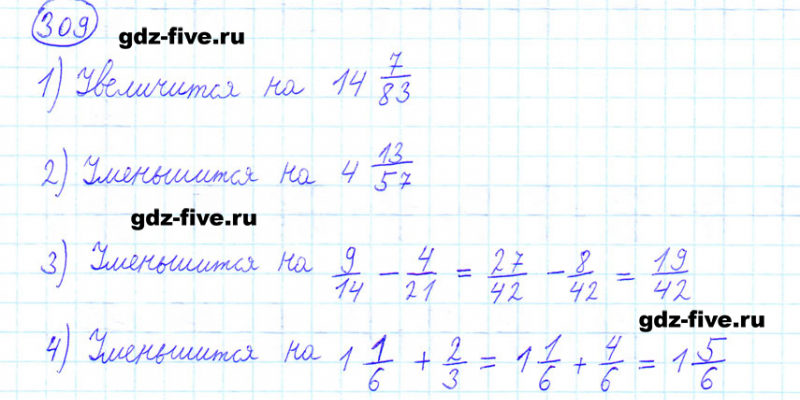 309
gdz-five.ru
1) Увеличится на 14 7/83
2) Уменьшится на 4 13/57
gdz-five.ru
3) Уменьшится на 9/14 - 4/21 = 27/42 - 8/42 = 19/42
gdz-five.ru
4) Уменьшится на 1 1/6 + 2/3 = 1 1/6 + 4/6 = 1 5/6